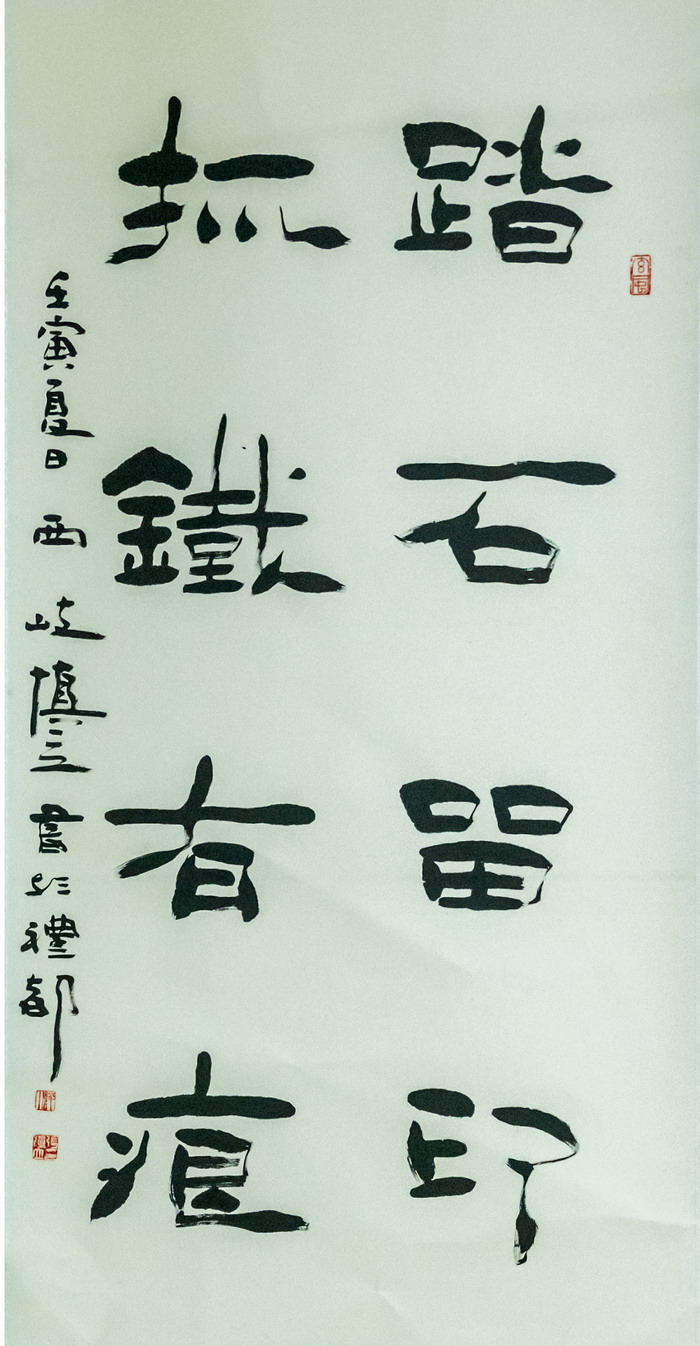 踏石留印
抓鐵有痕
壬寅夏日 西岐 慎 書於禮都